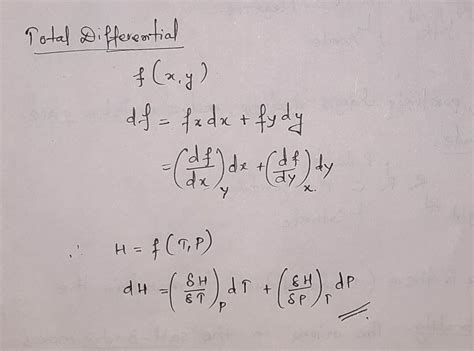 Total Differential
f(x,y)
df = fxdx + fydy
= (df/dx)y dx + (df/dy)x. dy
∴ H = f(T,P)
dH = (δH/δT)P dT + (δH/δP)T dP